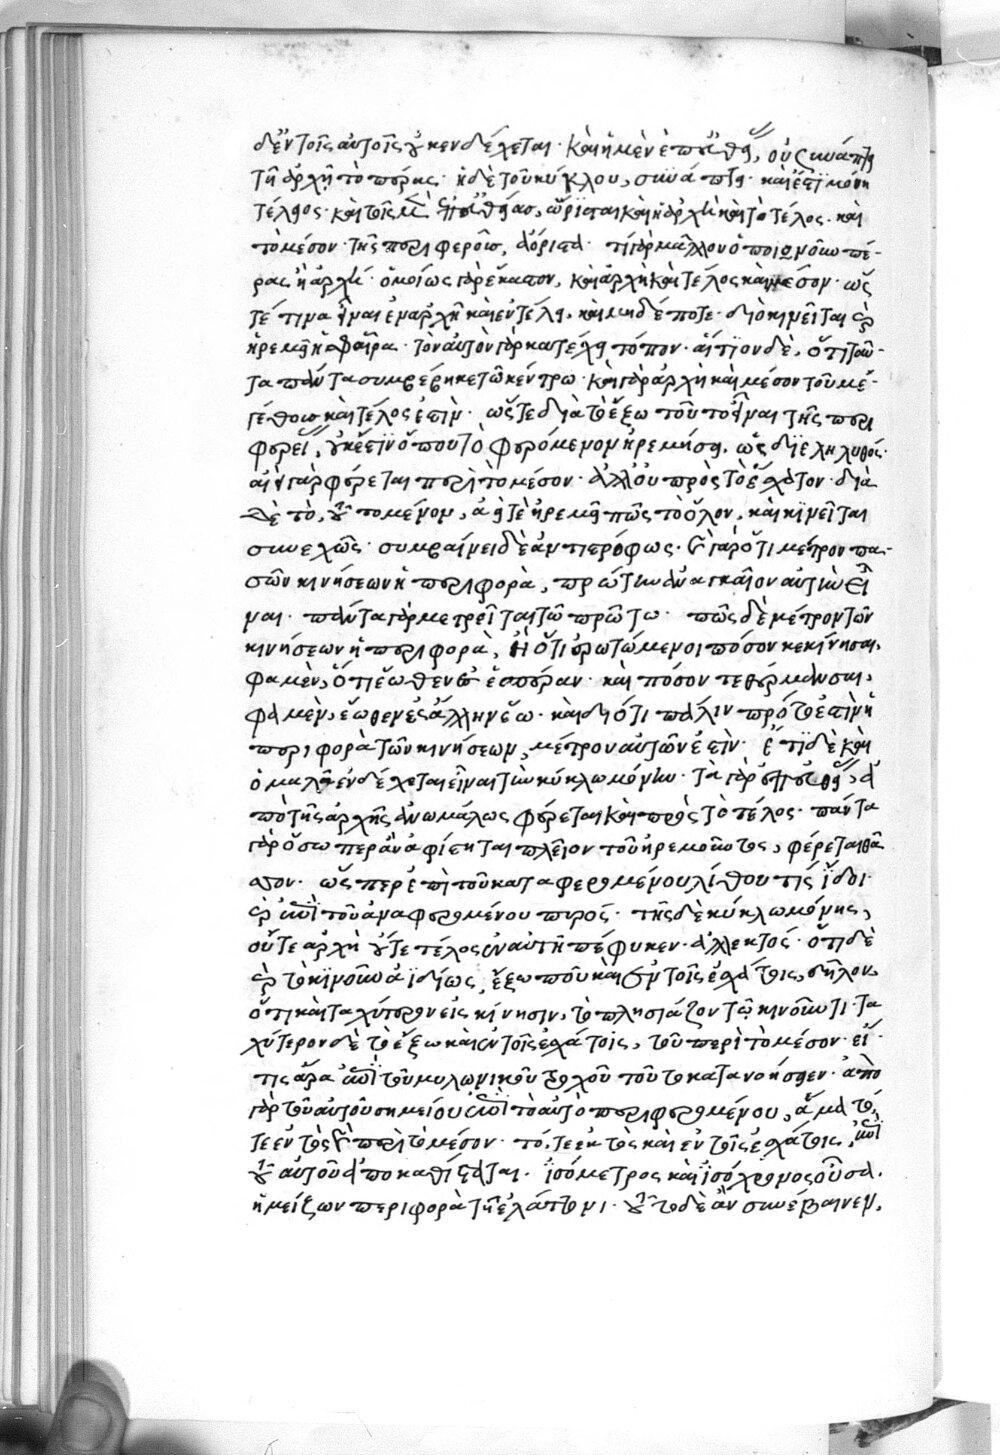 δ' ἐν τοῖς αὐτοῖς οὐκ ἐνδέχεται· καὶ ἡ μὲν ἐπ' εὐθείας, οὐ συνάπτει
τῇ ἀρχῇ τὸ πέρας· ἡ δὲ τοῦ κύκλου, συνάπτει· καὶ ἔστι μόνη
τέλειος· καὶ τῆς μὲν ἐπ' εὐθείας, ὥρισται καὶ ἡ ἀρχὴ καὶ τὸ τέλος· καὶ
τὸ μέσον· τῆς περιφεροῦς, ἀόριστα· τί γὰρ μᾶλλον ὁποιονοῦν πέ-
ρας ἢ ἀρχή· ὁμοίως γὰρ ἕκαστον, καὶ ἀρχὴ καὶ τέλος καὶ μέσον· ὥς
τέ τινα εἶναι ἐν ἀρχῇ καὶ ἐν τέλει, καὶ μηδέποτε· διὸ κινεῖται καὶ
ἠρεμεῖ ἡ σφαῖρα· τὸν αὐτὸν γὰρ κατέχει τόπον· αἴτιον δὲ, ὅτι ταῦ-
τα πάντα συμβέβηκε τῷ κέντρῳ· καὶ γὰρ ἀρχὴ καὶ μέσον τοῦ με-
γέθους καὶ τέλος ἐστίν· ὥστε διὰ τὸ ἔξω τοῦτο εἶναι τῆς περι
φερείας, οὐκ ἔστιν ὅπου τὸ φερόμενον ἠρεμήσει, ὡς διεληλυθός·
αἰεὶ γὰρ φέρεται περὶ τὸ μέσον· ἀλλ' οὐ πρὸς τὸ ἔσχατον· διὰ
δὲ τὸ, τοῦτο μένειν, ἀεί τε ἠρεμεῖ πως τὸ ὅλον, καὶ κινεῖται
συνεχῶς· συμβαίνει δὲ ἀντιστρόφως· καὶ γὰρ ὅτι μέτρον πα-
σῶν κινήσεων ἡ περιφορὰ, πρώτην ἀναγκαῖον αὐτὴν εἶ
ναι· πάντα γὰρ μετρεῖται τῷ πρώτῳ· πῶς δὲ μέτρον τῶν
κινήσεων ἡ περιφορὰ, ἢ ὅτι ἐρωτώμενοι πόσον κεκίνησαι,
φαμὲν, ὅτι ἕωθεν εἰς ἑσπέραν· καὶ πόσον τεθέρμανσαι,
φαμὲν, ἕωθεν ἐς ἄλλην ἕω· καὶ διότι πάλιν πρώτη ἐστὶν ἡ
περιφορὰ τῶν κινήσεων, μέτρον αὐτῶν ἐστίν· ἔτι δὲ καὶ
ὁμαλῆ ἐνδέχεται εἶναι τὴν κύκλῳ μόνην· τὰ γὰρ ἐπ' εὐθείας, ἀ
πὸ τῆς ἀρχῆς ἀνωμάλως φέρεται καὶ πρὸς τὸ τέλος· πάντα
γὰρ ὅσῳ περ ἂν ἀφίστηται πλεῖον τοῦ ἠρεμοῦντος, φέρεται θᾶ
ττον· ὥσπερ ἐπὶ τοῦ καταφερομένου λίθου τὶς ἴδοι·
καὶ ἐπὶ τοῦ ἀναφερομένου πυρός· τῆς δὲ κύκλῳ μόνης,
οὔτε ἀρχὴ οὔτε τέλος ἐν αὐτῇ πέφυκεν· ἀλλ' ἐκτός· ὅτι δὲ
καὶ τὸ κινοῦν ἀϊδίως, ἔξω που καὶ ἐν τοῖς ἐσχάτοις, δῆλον,
ὅτι καὶ ταχύτερον εἰς κίνησιν, τὸ πλησιάζον τῷ κινοῦντι· τα
χύτερον δὲ τὸ ἔξω καὶ ἐν τοῖς ἐσχάτοις, τοῦ περὶ τὸ μέσον· εἴ
τις ἄρα ἐπὶ τοῦ μυλωνικοῦ τροχοῦ τοῦτο κατανοήσειεν· ἀπὸ
γὰρ τοῦ αὐτοῦ σημείου ἐπὶ τὸ αὐτὸ περιφερομένου, ἅμα τό,
τε ἐντὸς καὶ περὶ τὸ μέσον· τό, τε ἐκτὸς καὶ ἐν τοῖς ἐσχάτοις, ἐπὶ
τοῦ αὐτοῦ ἀποκαθίσταται· ἰσόμετρος καὶ ἰσόχρονος οὖσα,
ἡ μείζων περιφορὰ τῇ ἐλάττονι· τοῦτο δὲ ἂν συνέβαινεν,